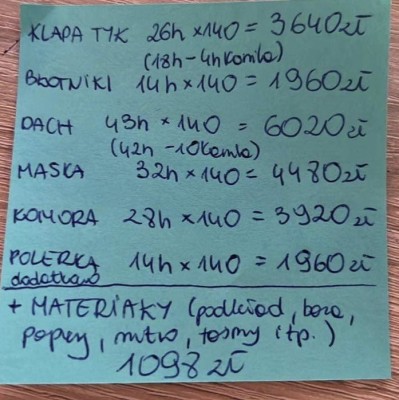 KLAPA TYŁ 26h × 140 = 3640zł
(18h - 4h Kamila)
BŁOTNIKI 14h × 140 = 1960zł
DACH 43h × 140 = 6020zł
(42h - 10 Kamila)
MASKA 32h × 140 = 4480zł
KOMORA 28h × 140 = 3920zł
POLERKA 14h × 140 = 1960zł
dodatkowo
+ MATERIAŁY (podkład, baza,
papiery, nitro, taśmy itp.)
1098zł